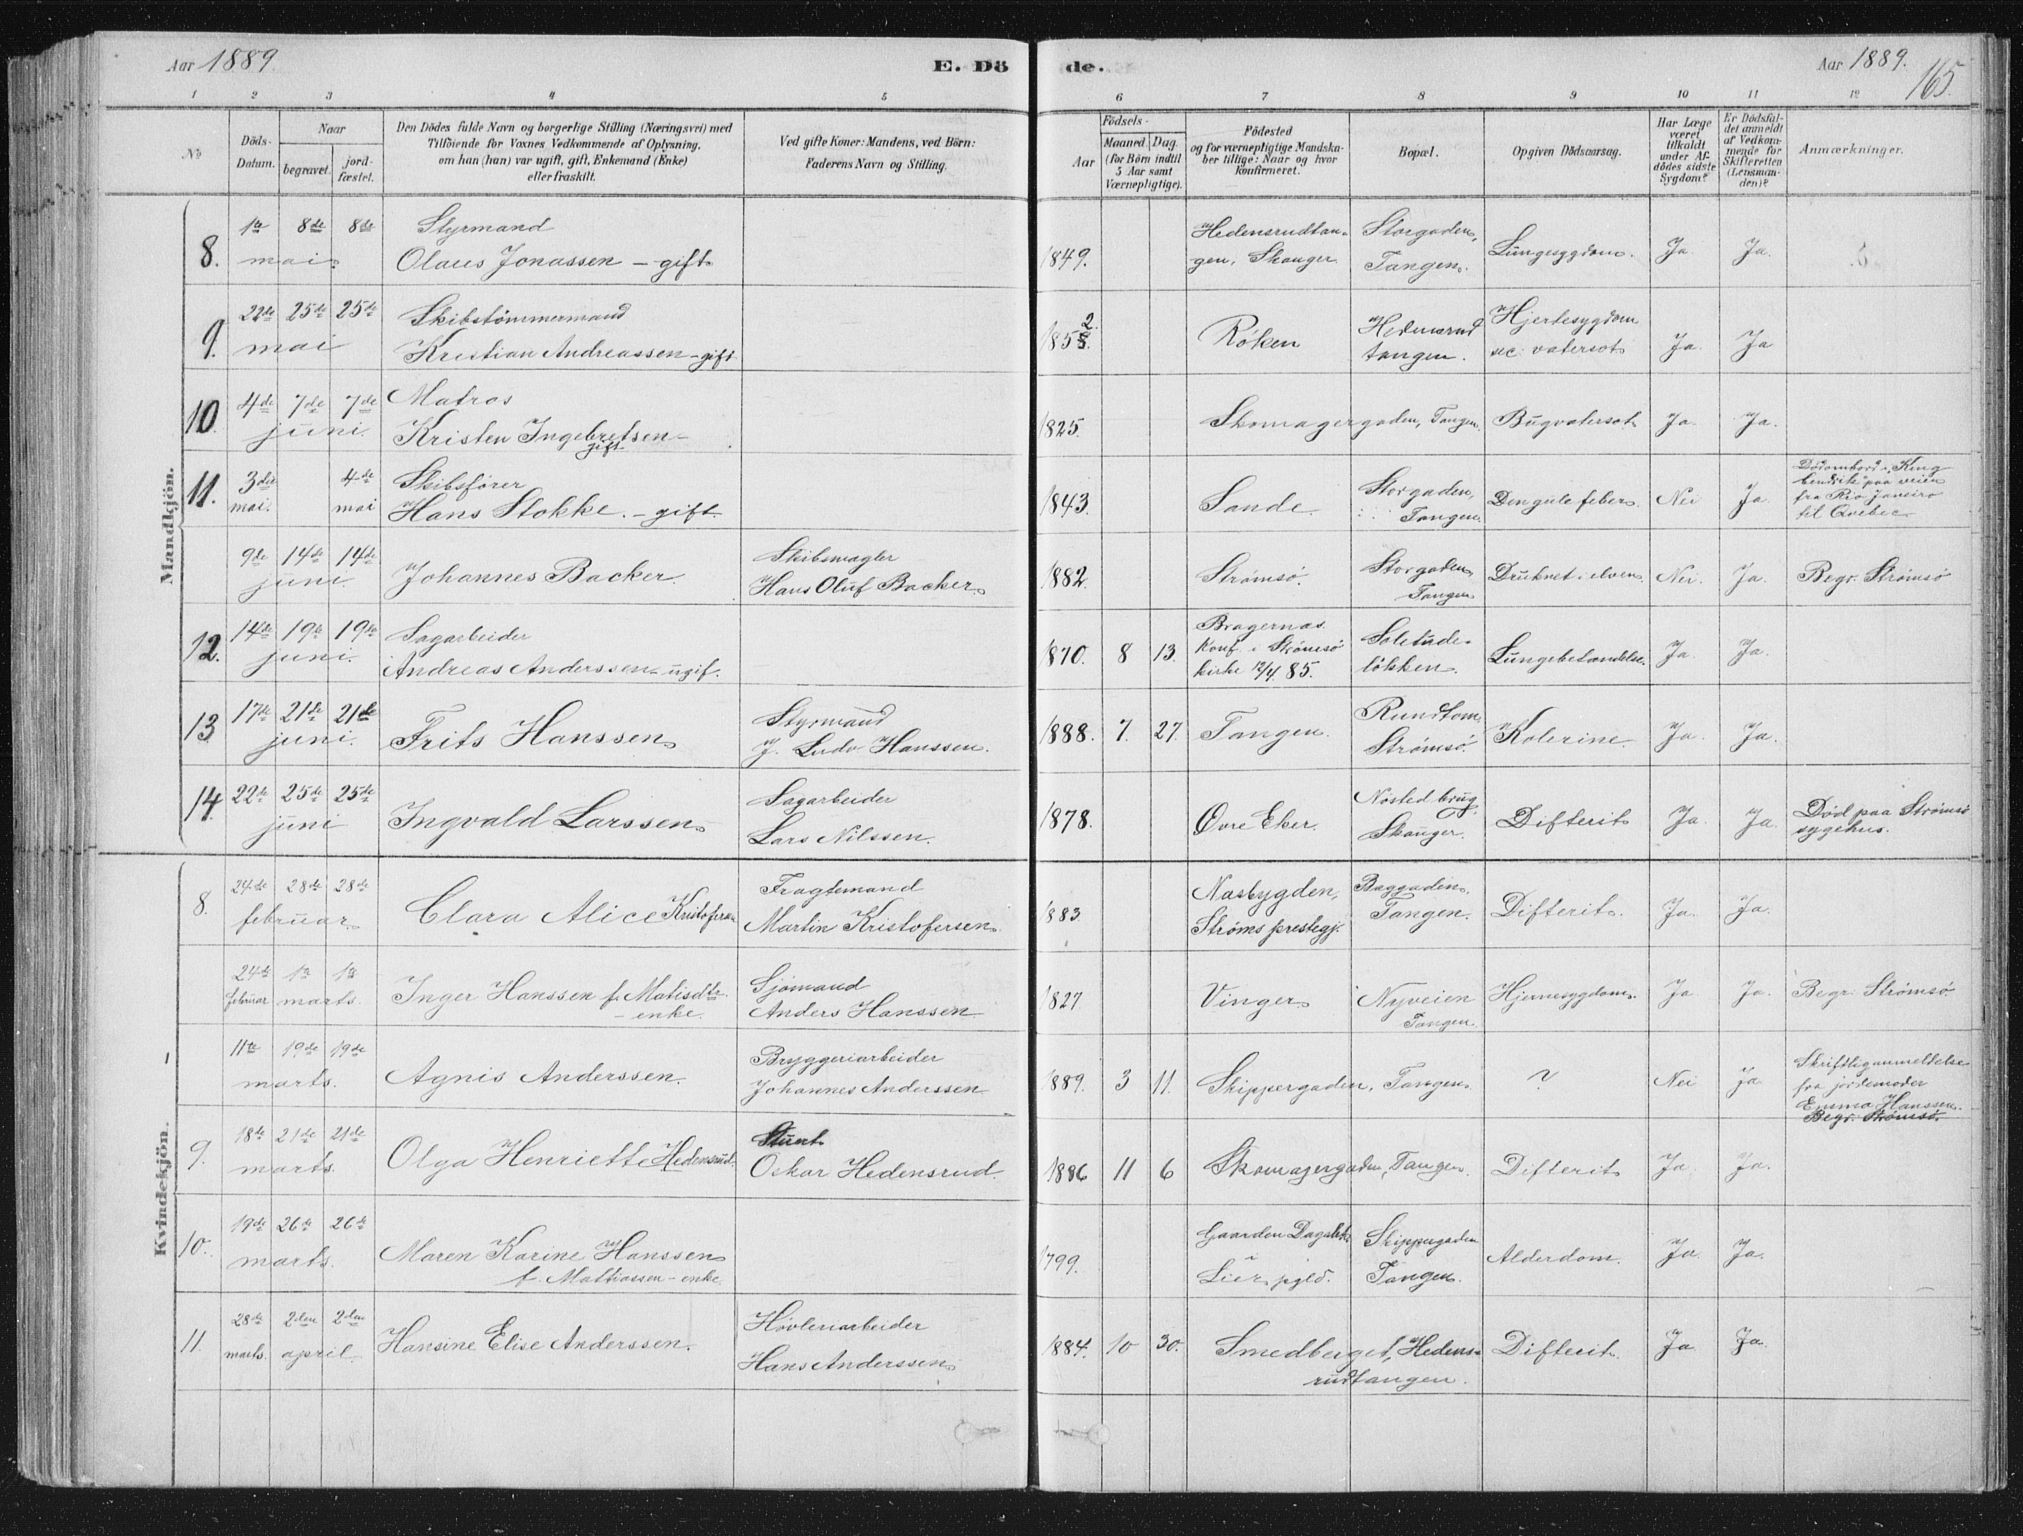 Aar 1889.
E. Dö
de.
Aar 1889.
165.
1 2 3 4 5 6 7 8 9 10 11 12
No
Döds-
Datum.
Naar
begravet.
jord-
fæstet.
Den Dödes fulde Navn og borgerlige Stilling (Næringsvei) med
Tilföiende for Voxnes Vedkommende af Oplysning.
om han (hun) var ugift, gift, Enkemand (Enke)
eller fraskilt.
Ved gifte Koner: Mandens, ved Börn:
Faderens Navn og Stilling.
Födsels-
Aar
Maaned. Dag.
(for Börn indtil
5 Aar samt
Værnepligtige).
Födested
og for værnepligtige Mandska-
ber tillige: Naar og hvor
Konfirmeret.
Bopæl.
Opgiven Dödsaarsag.
Har Læge
været
tilkaldt
under Af-
dödes sidste
Sygdom?
Er Dödsfal-
det anmeldt
af Vedkom-
mende for
Skifteretten
(Lensman-
den)?
Anmærkninger.
Mandkjön.
8. 1te 8de 8de
mai.
Styrmand
Olaus Jonassen - gift.
1849.
Hedensrudtan-
gen, Skouger
Storgaden,
Tangen.
Lungesygdom.
Ja Ja.
9. 22de 25de 25de
mai
Skibstømmermand
Kristian Andreassen - gift
1852.
Røken
Hedensrud
tangen.
Hjertesygdom
sec: vatersot
Ja. Ja
10. 4de 7de 7de
juni.
Matros
Kristen Ingebretsen -
gift
1825.
Skomagergaden, Tangen.
Bugvatersot
Ja. Ja.
11. 3die 4de
mai. mai
Skibsfører
Hans Stokke. - gift.
1843.
Sande
Storgaden,
Tangen.
Den gule feber.
Nei Ja
Død ombord i "King
hendrik" paa veien
fra Rio Janeiro
til Qvebec
9de 14de 14de
juni.
Johannes Backer
Skibsmægler
Hans Oluf Backer.
1882.
Strømsø.
Storgaden
Tangen
Druknet i elven.
Nei. Ja.
Begr. Strømsø
12. 14de 19de 19de
juni.
Sagarbeider
Andreas Anderssen - ugift.
1870. 8 13.
Bragernæs.
Konf. i Strømsø
kirke 12/4 85.
Solitude-
løkken.
Lungebetændelse.
Ja. Ja.
13 17de 21de 21de
juni.
Frits Hanssen
Styrmand
J. Ludv. Hanssen.
1888. 7. 27.
Tangen.
Rundtom
Strømsø.
Kolerine.
Ja. Ja.
14. 22de 25de 25de
juni
Ingvald Larssen
Sagarbeider
Lars Nilssen.
1878.
Øvre Eker.
Nøsted brug
Skouger.
Difterit
Ja. Ja.
Død paa Strømsø
sygehus.
Kvindekjön.
8. 24de 28de 28de
februar.
Clara Alice Kristofersen
Fragtemand
Martin Kristofersen.
1883
Næsbygden,
Strøms prestegj.
Baggaden.
Tangen.
Difterit.
Ja. Ja.
24de 1te 1te
februar marts.
Inger Hanssen f. Matisdtr
- enke.
Sjømand
Anders Hanssen
1827.
Vinger
Nyveien
Tangen.
Hjernesygdom.
Ja Ja.
Begr. Strømsø
11te 19de 19de
marts.
Agnis Anderssen.
Bryggeriarbeider
Johannes Anderssen
1889. 3 11.
Skippergaden, Tangen.
?
Nei Ja
Skriftlig anmeldelse
fra jordemoder
Emma Hanssen.
Begr. Strømsø.
9. 18de 21de 21de
marts.
Olga Henriette Hedensrud.
Stuert
Oskar Hedensrud.
1886 11 6
Skomagergaden, Tangen.
Difterit
Ja Ja.
10. 19de 26de 26de
marts.
Maren Karine Hanssen
f. Mathiassen - enke
1799.
Gaarden
Lier pgld.
Skippergaden
Tangen.
Alderdom.
Ja Ja.
11. 28de 2den 2den
marts. april.
Hansine Elise Anderssen.
Høvleriarbeider
Hans Anderssen
1884. 10 30.
Smedberget, Hedens-
rudtangen.
Difterit.
Ja Ja.